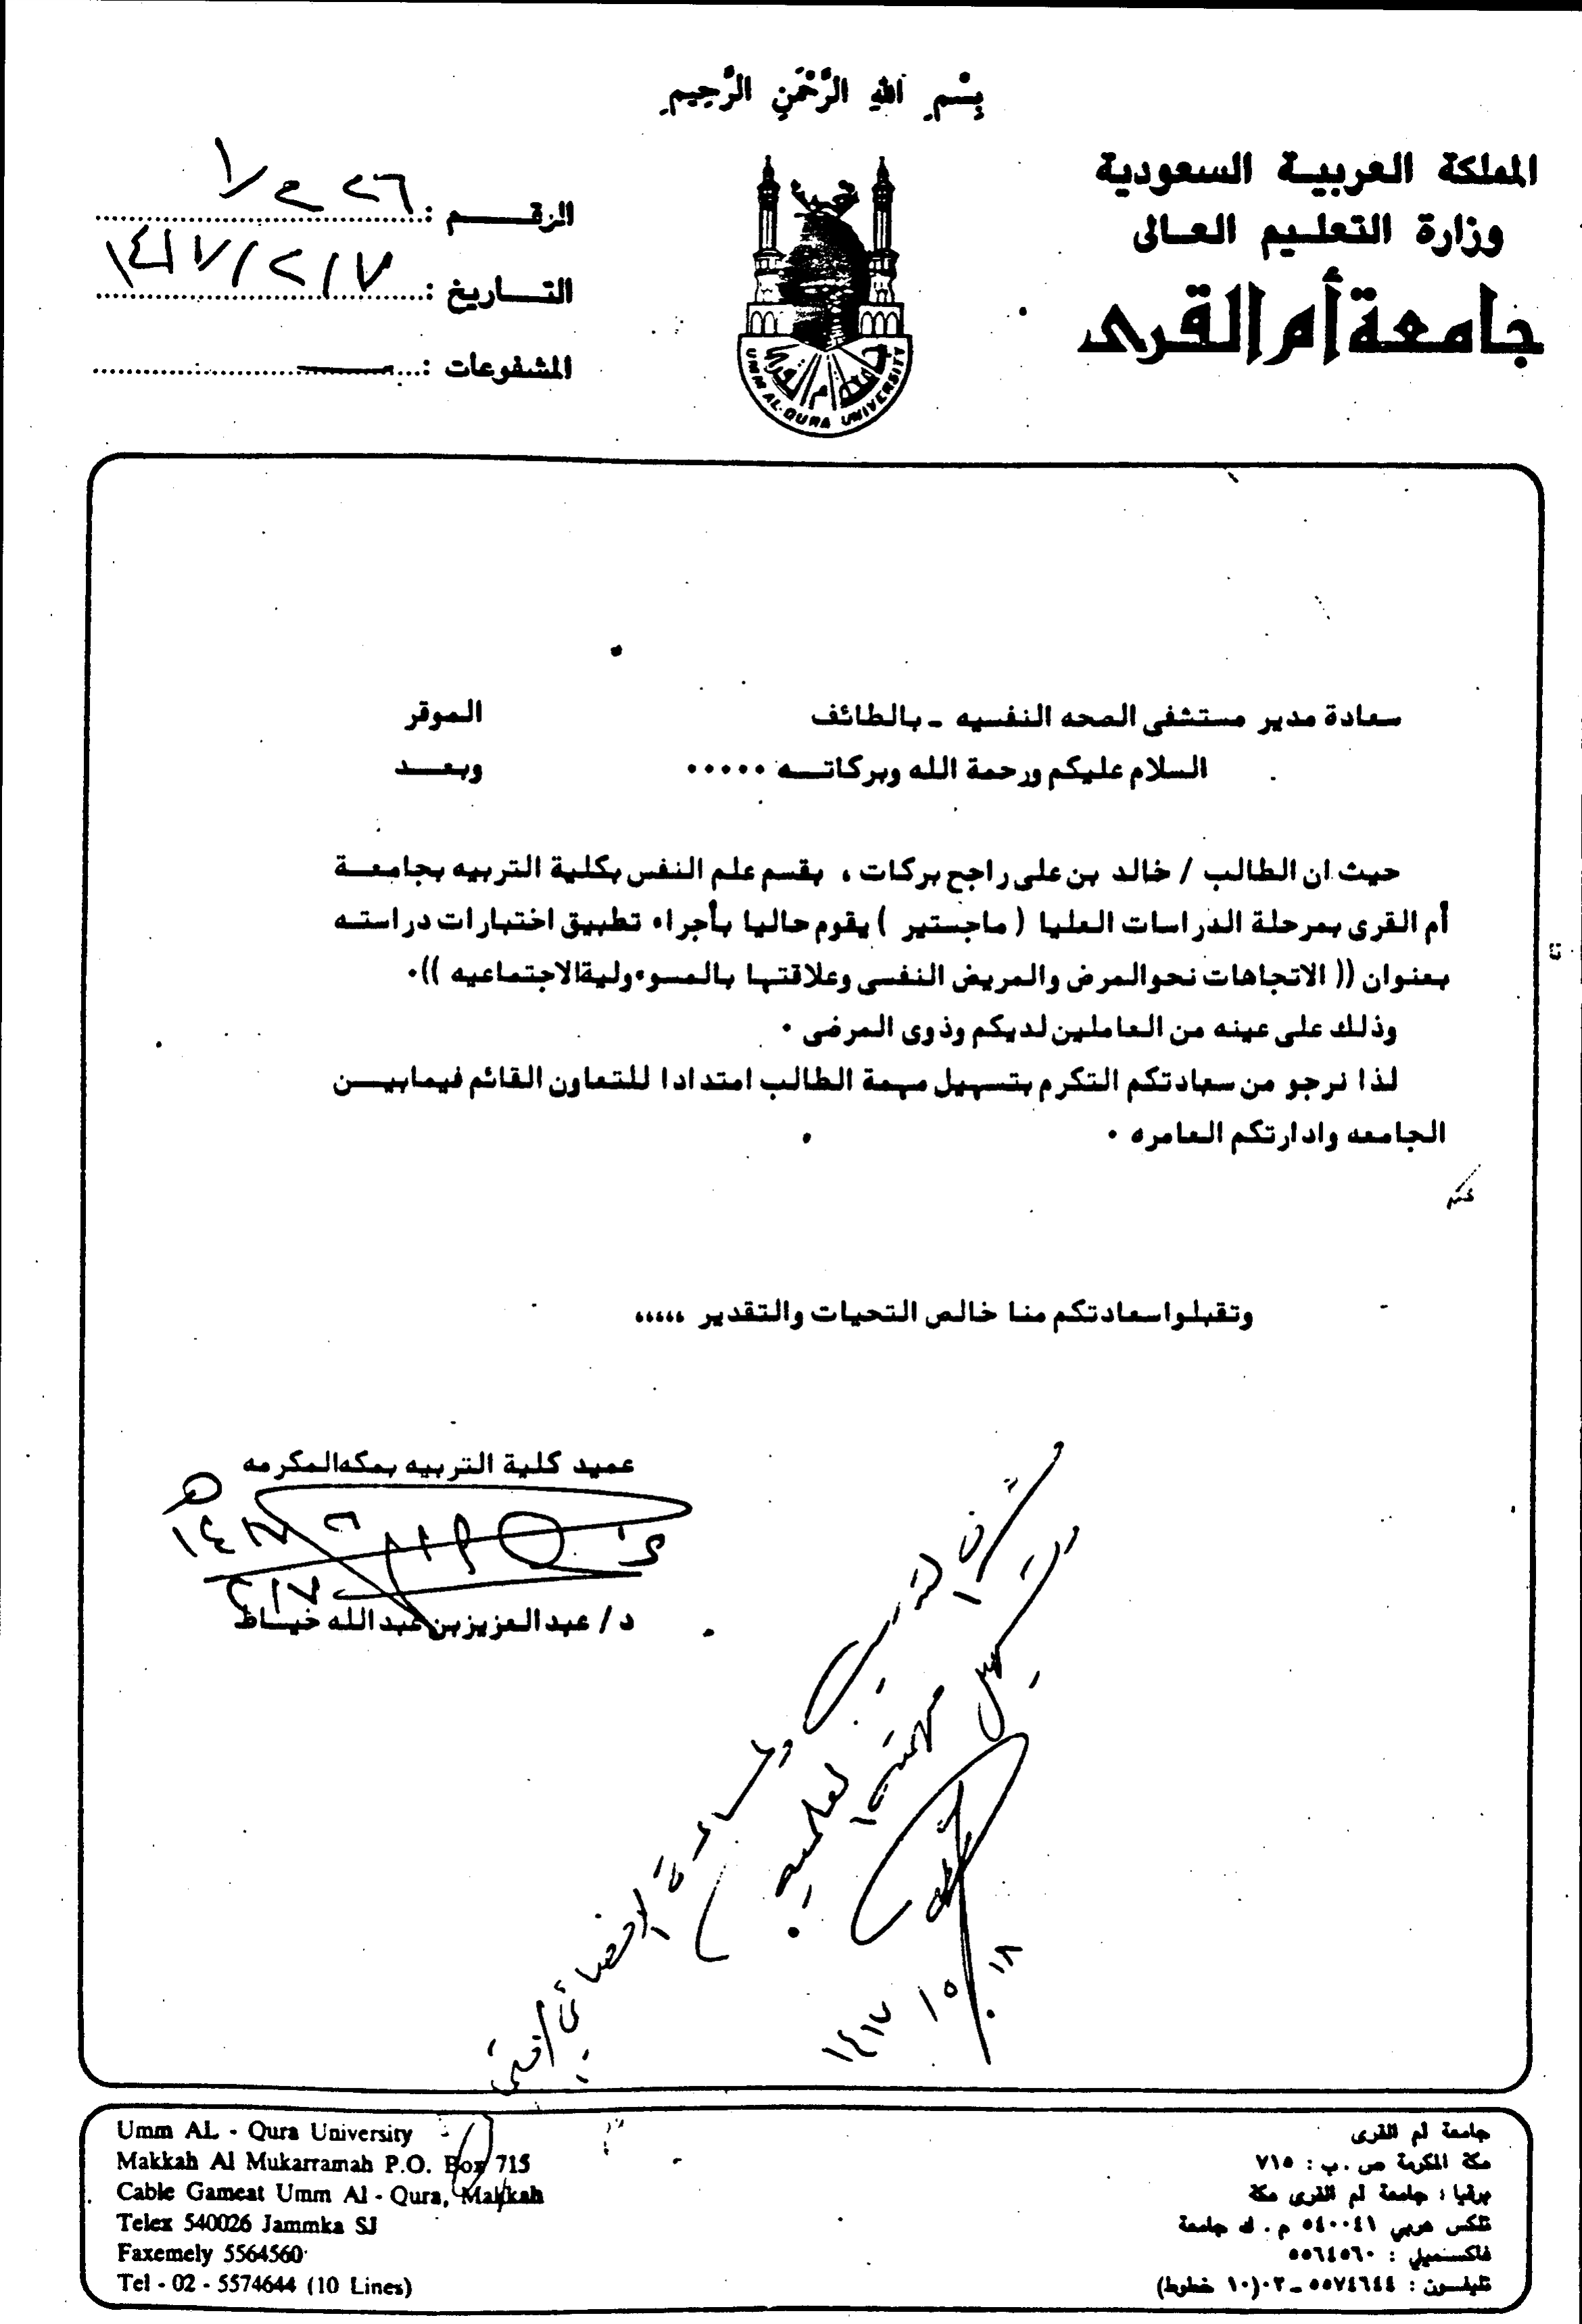 بِسْمِ اللهِ الرَّحْمَنِ الرَّحِيمِ
المملكة العربية السعودية
وزارة التعليم العالى
جامعة أم القرى
الرقم :
التاريخ : ١٤١٧/٢/٧
المشفوعات :
UMM AL-QURA UNIVERSITY
سعادة مدير مستشفى الصحه النفسيه - بالطائف الموقر
السلام عليكم ورحمة الله وبركاتـه ٠٠٠٠٠ وبعـد
حيث ان الطالب / خالد بن على راجح بركات ، بقسم علم النفس بكلية التربيه بجامعـة
أم القرى بمرحلة الدراسات العليا ( ماجستير ) يقوم حاليا بأجراء تطبيق اختبارات دراستـه
بعنوان (( الاتجاهات نحوالمرض والمريض النفسى وعلاقتها بالمسوءوليةالاجتماعيه ))٠
وذلك على عينه من العاملين لديكم وذوى المرضى ٠
لذا نرجو من سعادتكم التكرم بتسهيل مهمة الطالب امتدادا للتعاون القائم فيمابيـن
الجامعه وادارتكم العامره ٠
وتقبلوا سعادتكم منا خالص التحيات والتقدير ،،،،،
عميد كلية التربيه بمكه المكرمه
١٤١٧ هـ
٢/٧
د/ عبدالعزيز بن عبدالله خياط
ومساعدة الاخصائي
مهمته
١٨ / ٥ / ١٤١٧
Umm AL - Qura University
Makkah Al Mukarramah P.O. Box 715
Cable Gameat Umm Al - Qura, Makkah
Telex 540026 Jammka SJ
Faxemely 5564560
Tel - 02 - 5574644 (10 Lines)
جامعة أم القرى
مكة المكرمة ص . ب : ٧١٥
برقيا : جامعة أم القرى مكة
تلكس عربي ٥٤٠٠٤١ م . ك جامعة
فاكسميلي : ٥٥٦٤٥٦٠
تليفون : ٥٥٧٤٦٤٤ - ٠٢ (١٠ خطوط)